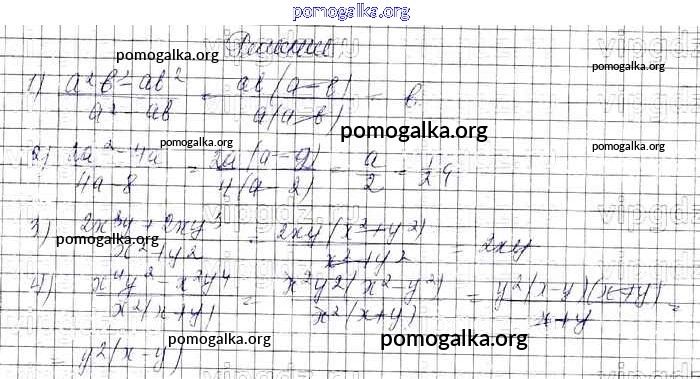 pomogalka.org
Решение
pomogalka.org
1) (a²b - ab²)/(a² - ab) = ab(a-b)/a(a-b) = b.
pomogalka.org
pomogalka.org
2) (2a² - 4a)/(4a - 8) = 2a(a-2)/4(a-2) = a/2 = 1/2 a
3) (2x³y + 2xy³)/(x² + y²) = 2xy(x² + y²)/(x² + y²) = 2xy
pomogalka.org
4) (x⁴y² - x²y⁴)/x²(x+y) = x²y²(x² - y²)/x²(x+y) = y²(x-y)(x+y)/(x+y) =
pomogalka.org
pomogalka.org
= y²(x-y)